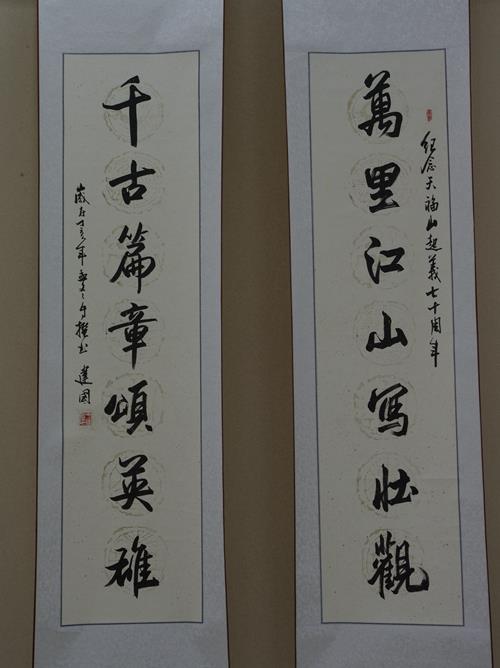 紀念天福山起義七十周年
萬里江山写壯觀
千古篇章頌英雄
歲在丁亥年
撰书 建國